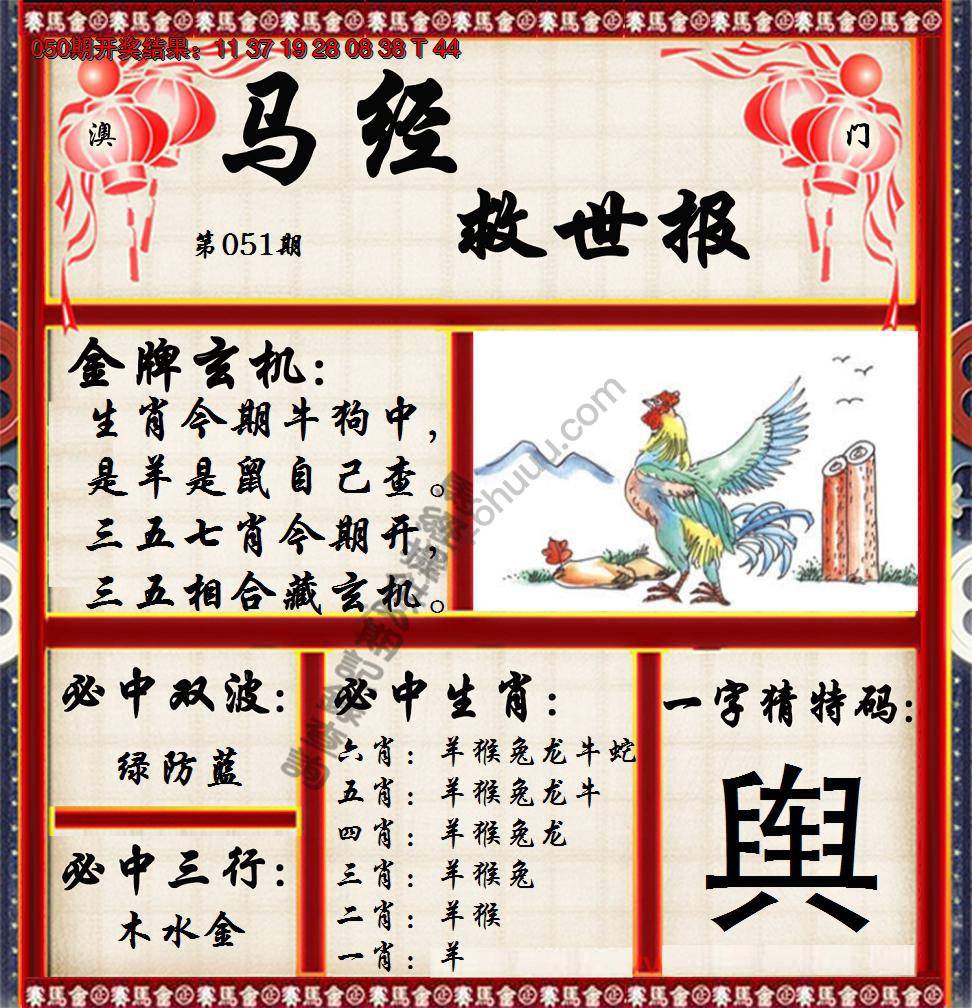 賽馬會㊣賽馬會㊣賽馬會㊣賽馬會㊣賽馬會㊣賽馬會㊣賽馬會㊣
050期开奖结果：11 37 19 28 08 38 T 44
澳 门
马经
救世报
第051期
金牌玄机：
生肖今期牛狗中，
是羊是鼠自己查。
三五七肖今期开，
三五相合藏玄机。
必中双波：
绿防蓝
必中三行：
木水金
必中生肖：
六肖：羊猴兔龙牛蛇
五肖：羊猴兔龙牛
四肖：羊猴兔龙
三肖：羊猴兔
二肖：羊猴
一肖：羊
一字猜特码：
舆